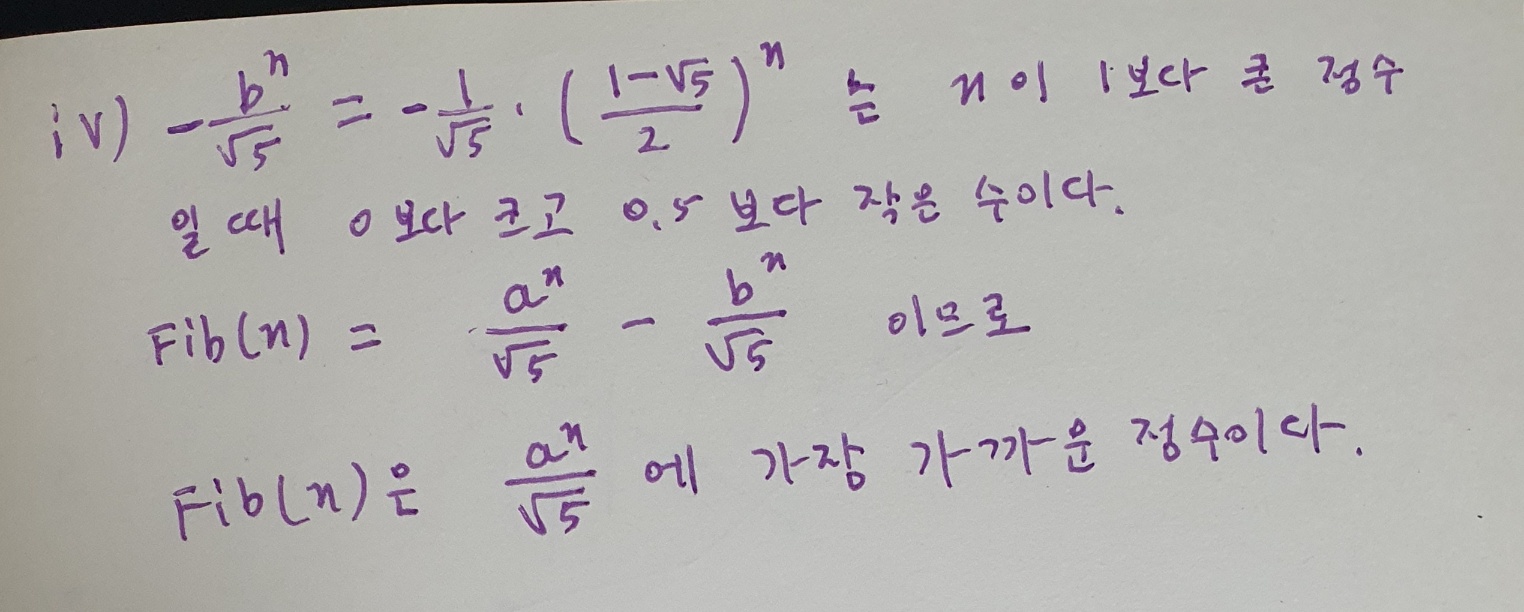 iv) -bⁿ/√5 = -1/√5 · ((1-√5)/2)ⁿ 는 n이 1보다 큰 정수
일 때 0보다 크고 0.5보다 작은 수이다.
Fib(n) = aⁿ/√5 - bⁿ/√5 이므로
Fib(n)은 aⁿ/√5 에 가장 가까운 정수이다.